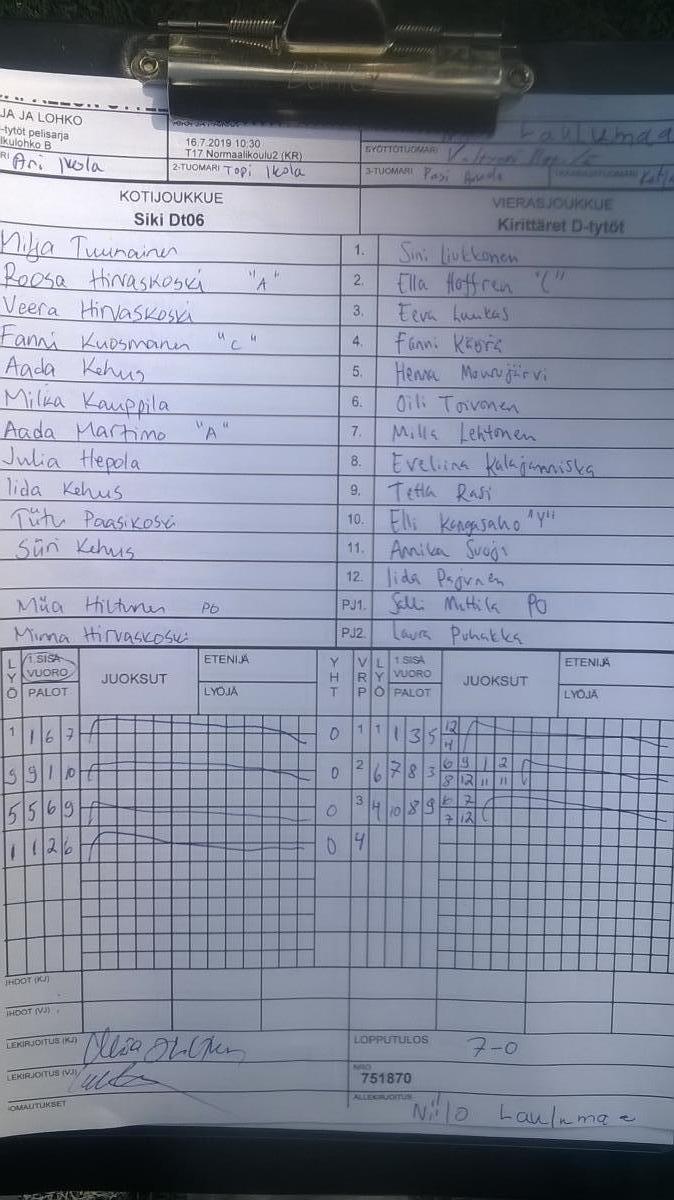 JA JA LOHKO
-tytöt pelisarja
lkulohko B
16.7.2019 10:30
T17 Normaalikoulu2 (KR)
Laulumaa
SYÖTTÖTUOMARI
RI Ari Ikola
2-TUOMARI Topi Ikola
3-TUOMARI Pasi
KOTIJOUKKUE
Siki Dt06
VIERASJOUKKUE
Kirittäret D-tytöt
Milja Tuunainen 1. Sini Liukkonen
Roosa Hirvaskoski "A" 2. Ella Hoffren "C"
Veera Hirvaskoski 3. Eeva Laukas
Fanni Kuosmanen "C" 4. Fanni Kääriä
Aada Kehus 5. Henna Mourujärvi
Milka Kauppila 6. Oili Toivonen
Aada Martimo "A" 7. Milla Lehtonen
Julia Hepola 8. Eveliina Kalajanniska
Iida Kehus 9. Tetta Rasi
Tütu Paasikoski 10. Elli Kangasaho "V"
Siiri Kehus 11. Annika Suoja
12. Iida Pajunen
Miia Hiltunen PO PJ1. Salli Mattila PO
Minna Hirvaskoski PJ2. Laura Puhakka
LYÖ 1.SISÄ VUORO PALOT JUOKSUT ETENIJÄ LYÖJÄ YHT VRP LYÖ 1.SISÄ VUORO PALOT JUOKSUT ETENIJÄ LYÖJÄ
1 1 6 7 0 1 1 1 3 5 12/4
9 9 1 10 0 2 6 7 8 3 6/8 9/12 1/11 2/11
5 5 6 9 0 3 4 10 8 9 7/12
1 1 2 6 0 4
IHDOT (KJ)
IHDOT (VJ)
LEKIRJOITUS (KJ)
LOPPUTULOS 7-0
LEKIRJOITUS (VJ)
NRO
751870
OMAUTUKSET
ALLEKIRJOITUS Niilo Laulumaa